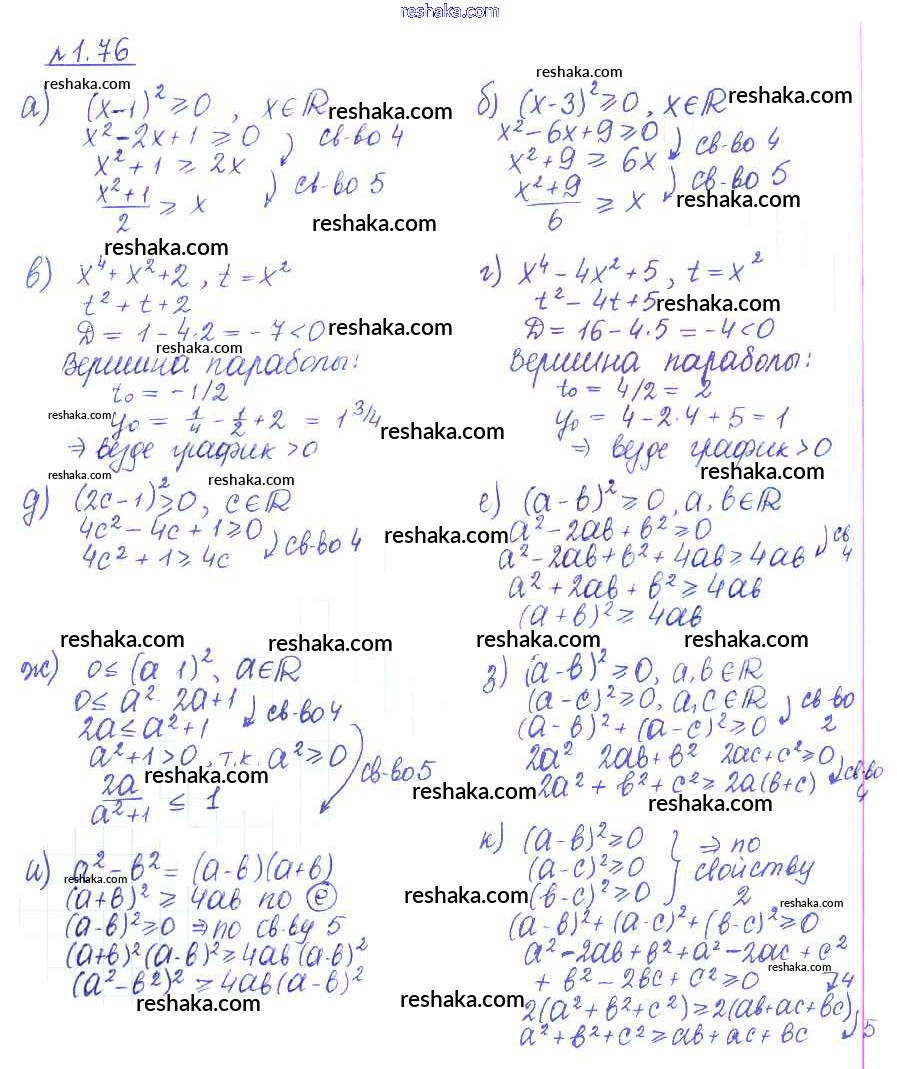 reshaka.com
№1.76
reshaka.com
а) (x-1)² ≥ 0 , x∈ℝ reshaka.com
x² - 2x + 1 ≥ 0 св-во 4
x² + 1 ≥ 2x
(x²+1)/2 ≥ x св-во 5
reshaka.com
reshaka.com
reshaka.com
б) (x-3)² ≥ 0, x∈ℝ reshaka.com
x² - 6x + 9 ≥ 0 св-во 4
x² + 9 ≥ 6x св-во 5
(x²+9)/6 ≥ x reshaka.com
в) x⁴ + x² + 2 , t = x²
t² + t + 2
D = 1 - 4·2 = -7 < 0 reshaka.com
reshaka.com
Вершина параболы:
t₀ = -1/2
reshaka.com y₀ = 1/4 - 1/2 + 2 = 1 3/4 reshaka.com
⇒ везде график > 0
reshaka.com
г) x⁴ - 4x² + 5 , t = x²
t² - 4t + 5 reshaka.com
D = 16 - 4·5 = -4 < 0
Вершина параболы:
t₀ = 4/2 = 2
y₀ = 4 - 2·4 + 5 = 1
⇒ везде график > 0
reshaka.com
д) (2c-1)² ≥ 0, c∈ℝ
4c² - 4c + 1 ≥ 0 reshaka.com
4c² + 1 ≥ 4c св-во 4
reshaka.com
reshaka.com
е) (a-b)² ≥ 0, a, b∈ℝ
a² - 2ab + b² ≥ 0
a² - 2ab + b² + 4ab ≥ 4ab св. 4
a² + 2ab + b² ≥ 4ab
(a+b)² ≥ 4ab
reshaka.com
reshaka.com
ж) 0 ≤ (a 1)², a∈ℝ
0 ≤ a² 2a + 1 св-во 4
2a ≤ a² + 1
a² + 1 > 0, т.к. a² ≥ 0
reshaka.com св-во 5
2a/(a²+1) ≤ 1
reshaka.com
з) (a-b)² ≥ 0, a, b∈ℝ
(a-c)² ≥ 0, a, c∈ℝ св-во 2
(a-b)² + (a-c)² ≥ 0
2a² 2ab + b² 2ac + c² ≥ 0
2a² + b² + c² ≥ 2a(b+c) св-во 4
reshaka.com
и) a² - b² = (a-b)(a+b)
reshaka.com
(a+b)² ≥ 4ab по е
(a-b)² ≥ 0 ⇒ по св-ву 5
(a+b)²(a-b)² ≥ 4ab(a-b)²
(a²-b²)² ≥ 4ab(a-b)²
reshaka.com
к) (a-b)² ≥ 0
(a-c)² ≥ 0 ⇒ по свойству 2
reshaka.com (b-c)² ≥ 0
reshaka.com
(a-b)² + (a-c)² + (b-c)² ≥ 0
a² - 2ab + b² + a² - 2ac + c²
reshaka.com
+ b² - 2bc + c² ≥ 0 4
reshaka.com 2(a²+b²+c²) ≥ 2(ab+ac+bc)
a² + b² + c² ≥ ab + ac + bc 5